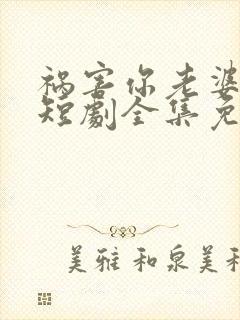 祸害你老婆
短劇全集免
美雅和泉美利